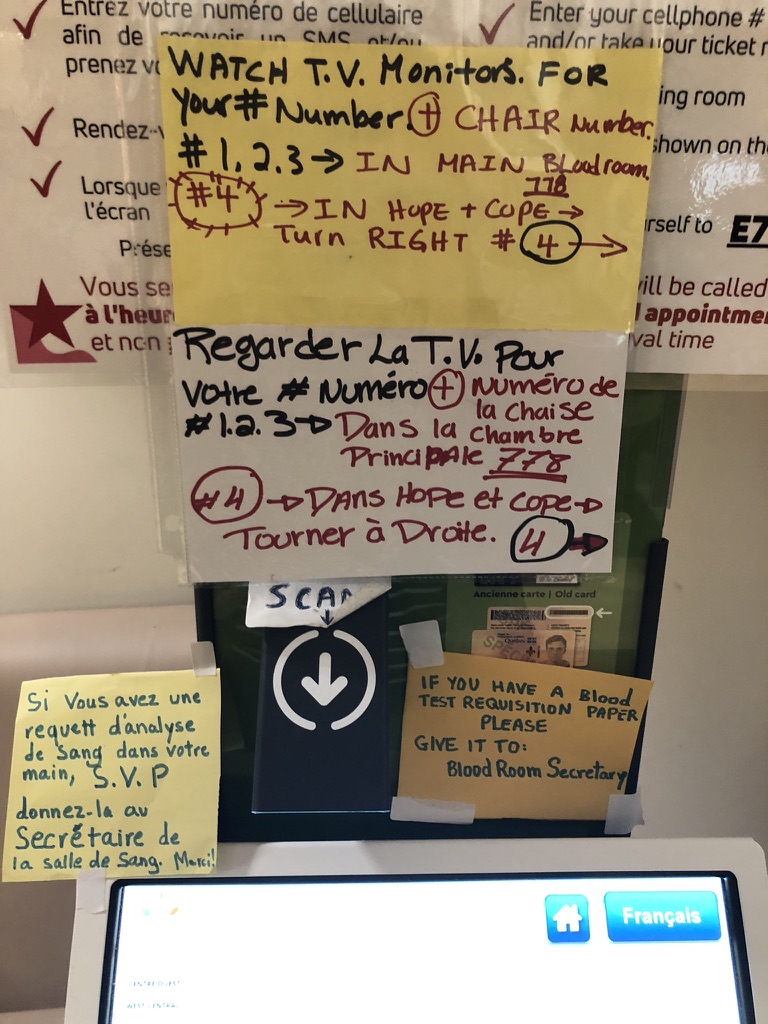 Entrez votre numéro de cellulaire
afin de recevoir un SMS et/ou
prenez
Rendez-
Lorsque
l'écran
Vous
à l'heur
et non
Enter your cellphone #
and/or take your ticket
ing room
shown on
rself to E7
ill be called
appointme
val time
WATCH T.V. Monitors. FOR
your # Number. + CHAIR Number.
# 1.2.3 → IN MAIN Bloodroom
778
#4 → IN HOPE + COPE →
Turn RIGHT # 4 →
Regarder La T.V. Pour
Votre # Numéro + Numéro de
la chaise
# 1.2.3 → Dans la chambre
Principale 778
#4 → Dans Hope et Cope →
Tourner à Droite. 4 →
SCAN
↓
Ancienne carte | Old card
←
Si Vous avez une
requett d'analyse
de Sang dans votre
main, S.V.P
donnez-la au
Secrétaire de
la salle de Sang. Merci!
IF YOU HAVE A Blood
TEST REQUISITION PAPER
PLEASE
GIVE IT TO:
Blood Room Secretary
Français
CENTRE-OUEST
WEST-CENTRAL